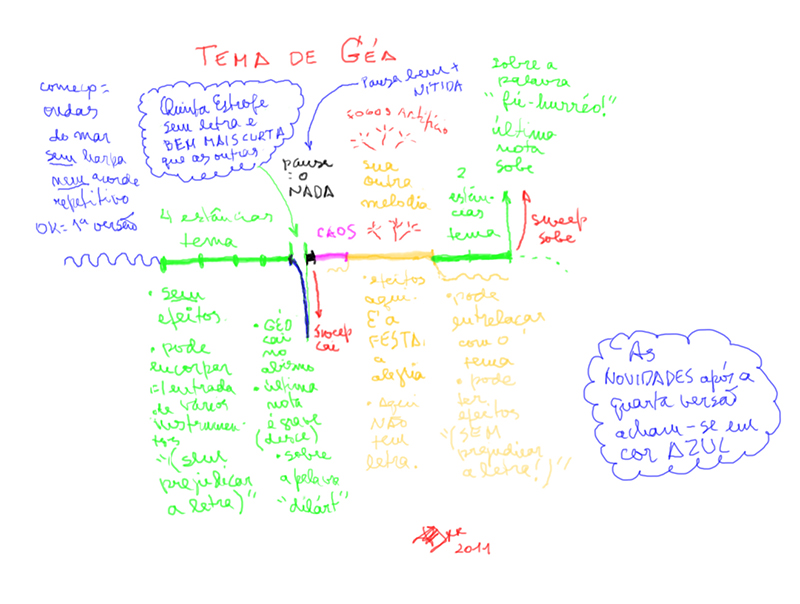 TEMA DE GÉA
começo =
ondas
do mar
sem harpa
nem acorde
repetitivo
OK = 1ª versão
Quinta Estrofe
sem letra e
BEM MAIS CURTA
que as outras
Pausa bem +
NÍTIDA
pausa
= o
NADA
FOGOS Artifício
sua
outra
melodia
sobre a
palavra
"fú-hurréo!"
última
nota
sobe
2
estân-
cias
tema
sweep
sobe
4 estâncias
tema
CAOS
• sem
efeitos.
• pode
encorpar
c/ entrada
de vários
instrumen-
tos
"(sem
prejudicar
a letra)"
• GÉO
cai
no
abismo
• última
nota
é grave
(desce)
• sobre
a palavra
"dilárt"
sweep
cai
• efeitos
aqui.
É a
FESTA,
a
alegria
• Aqui
NÃO
tem
letra.
• pode
entrelaçar
com o
tema
• pode
ter
efeitos
"(SEM
prejudicar
a letra!)"
As
NOVIDADES após a
quarta versão
acham-se em
cor AZUL
2011